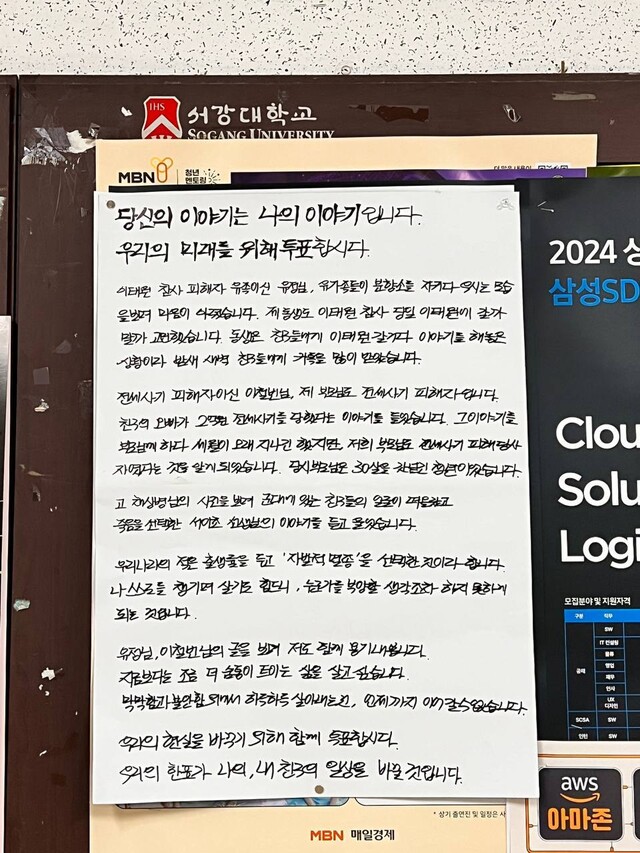 IHS
서강대학교
SOGANG UNIVERSITY
MBN
청년
멘토링
당신의 이야기는 나의 이야기입니다.
우리의 미래를 위해 투표합시다.
이태원 참사 피해자 유족이신 유정님, 유가족들이 분향소를 지키다 우시는 모습
을 보며 마음이 아팠습니다. 제 동생도 이태원 참사 당일 이태원에 갈까
말까 고민했습니다. 동생은 친구들에게 이태원 갈거다 이야기를 해놓은
상황이라 밤새 새벽 친구들에게 카톡을 많이 받았습니다.
전세사기 피해자이신 이철빈님, 제 부모님도 전세사기 피해자입니다.
친구의 오빠가 2억원 전세사기를 당했다는 이야기를 들었습니다. 그 이야기를
부모님께 하다 세월이 오래 지나긴 했지만, 저희 부모님도 전세사기 피해 당사
자였다는 것을 알게 되었습니다. 당시 부모님은 30살을 청년이었습니다.
고 채상병님의 사진을 보며 군대에 있는 친구들의 얼굴이 떠올랐고
죽음을 선택한 서이초 선생님의 이야기를 듣고 울었습니다.
우리나라의 적은 출생률을 두고 '자발적 멸종'을 선택한 것이라 합니다.
나 스스로를 챙기며 살기도 힘드니, 누군가를 부양할 생각조차 하지 못하게
되는 것입니다.
유정님, 이철빈님의 글을 보며 저도 함께 용기내봅니다.
지금보다는 조금 더 숨통이 트이는 삶을 살고 싶습니다.
막막함과 불안함 위에서 하루하루 살아내는 건, 언제까지 이어갈 수 없습니다.
우리의 현실을 바꾸기 위해 함께 투표합시다.
우리의 한표가 나의, 내 친구의 일상을 바꿀 것입니다.
2024 상
삼성SD
Clou
Solu
Logi
모집분야 및 지원자격
구분
직무
공채
SW
IT 컨설팅
물류
영업
재무
인사
UX
디자인
SCSA
SW
인턴
SW
aws
아마존
* 상기 출연진 및 일정은 사
MBN 매일경제